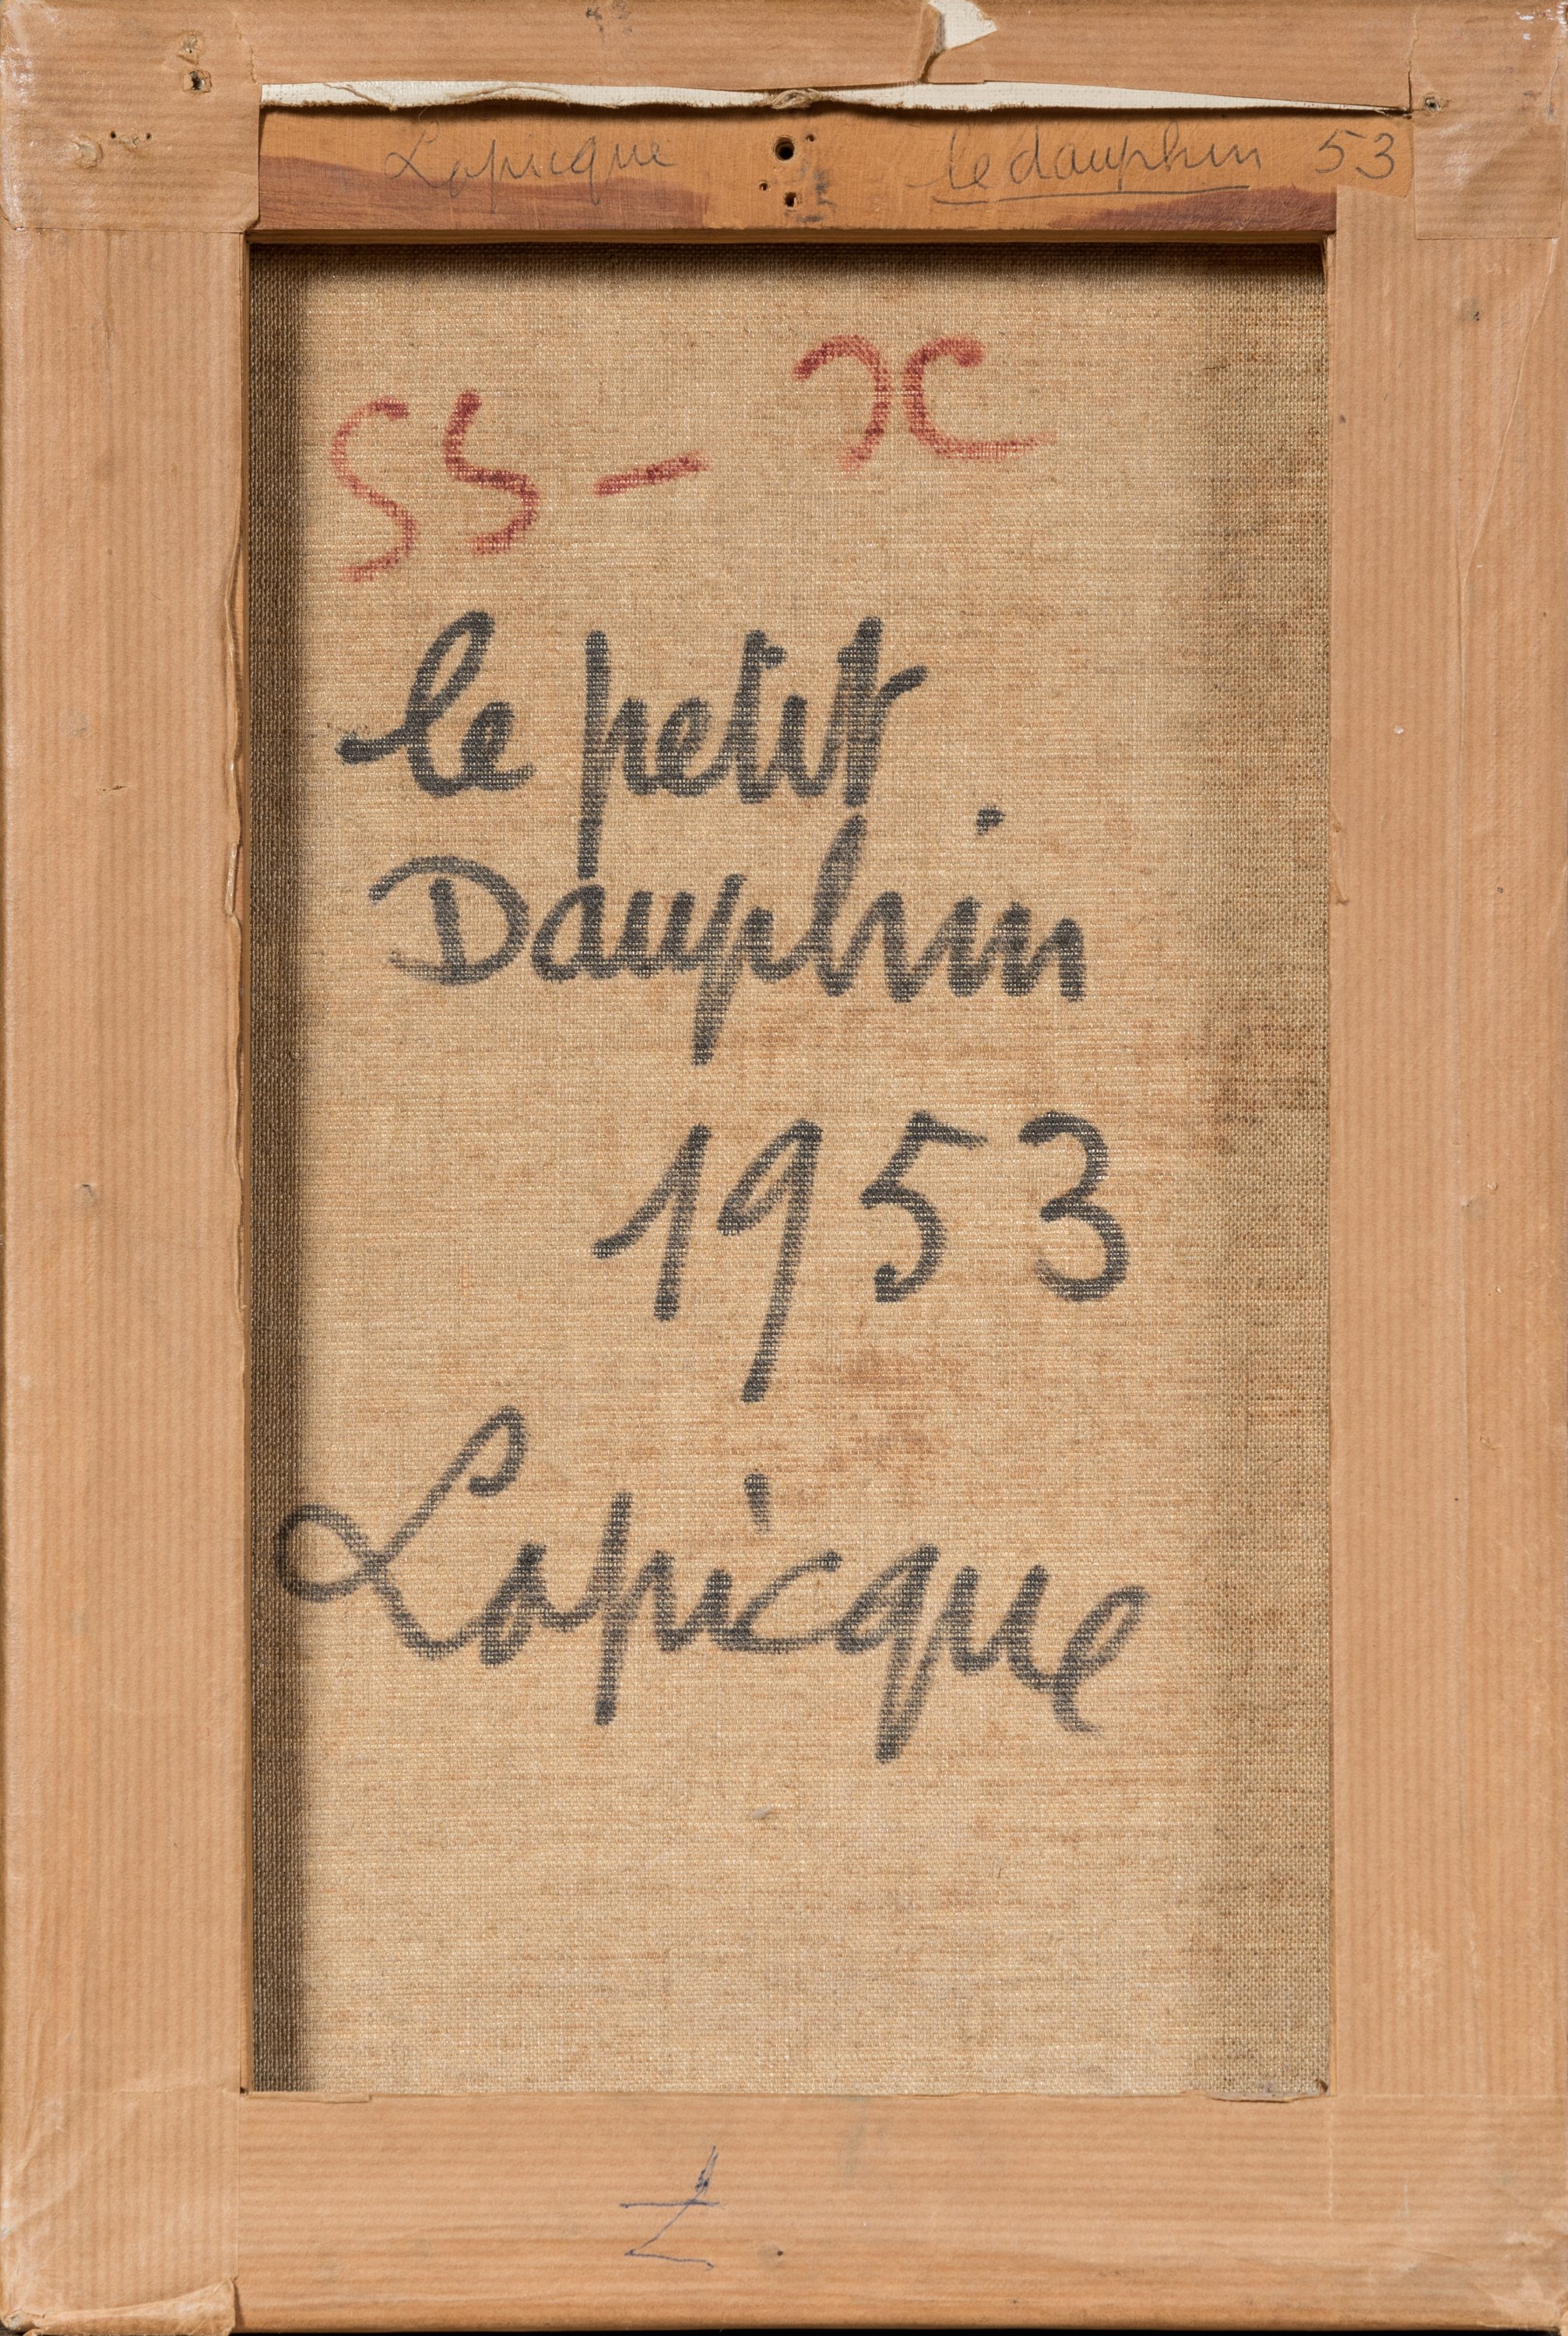 Lapicque le dauphin 53
55 - x
le petit
Dauphin
1953
Lapicque